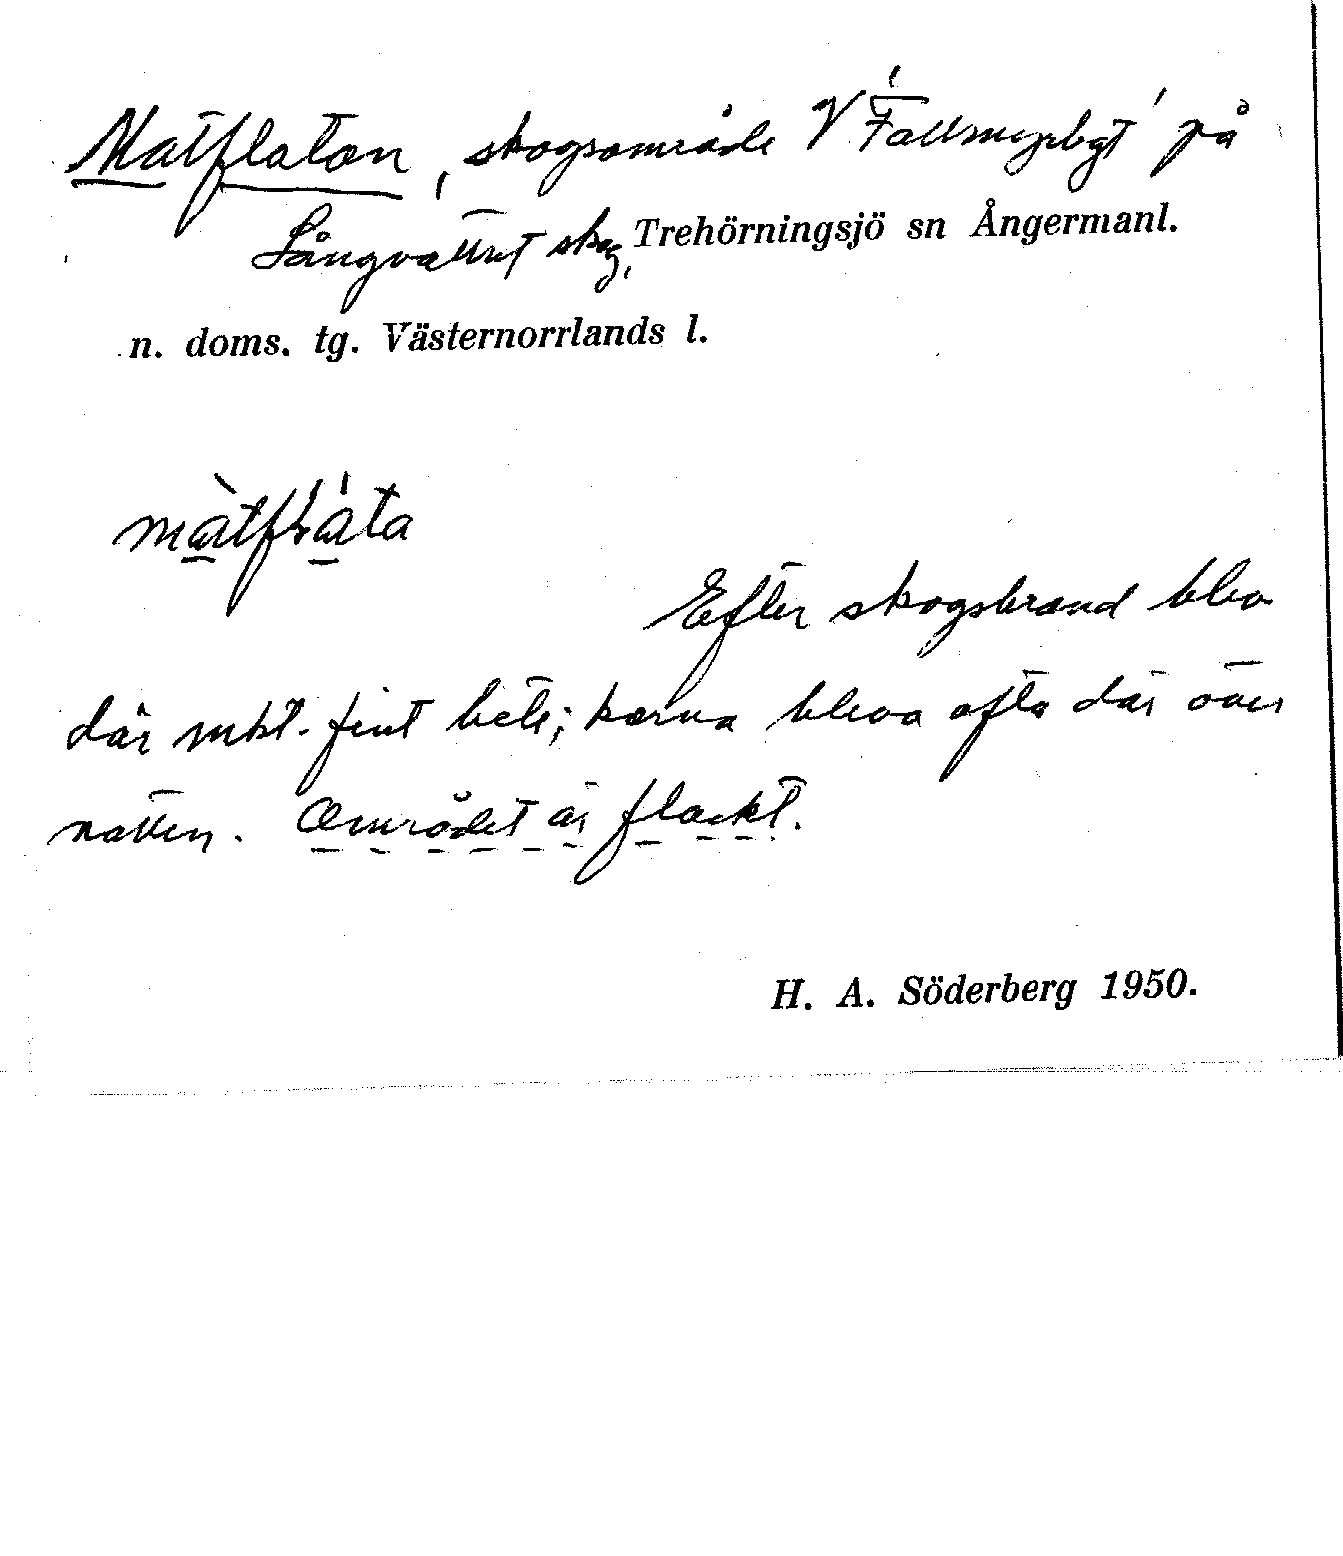 Matflatan, skogsområde V 'Fallmyrbgt' på
Långvattnet skog, Trehörningsjö sn Ångermanl.
n. doms. tg. Västernorrlands l.
màtfláta
Efter skogsbrand blev
där mkt. fint bete; korna bleva ofta där över
natten. Området är flackt.
H. A. Söderberg 1950.